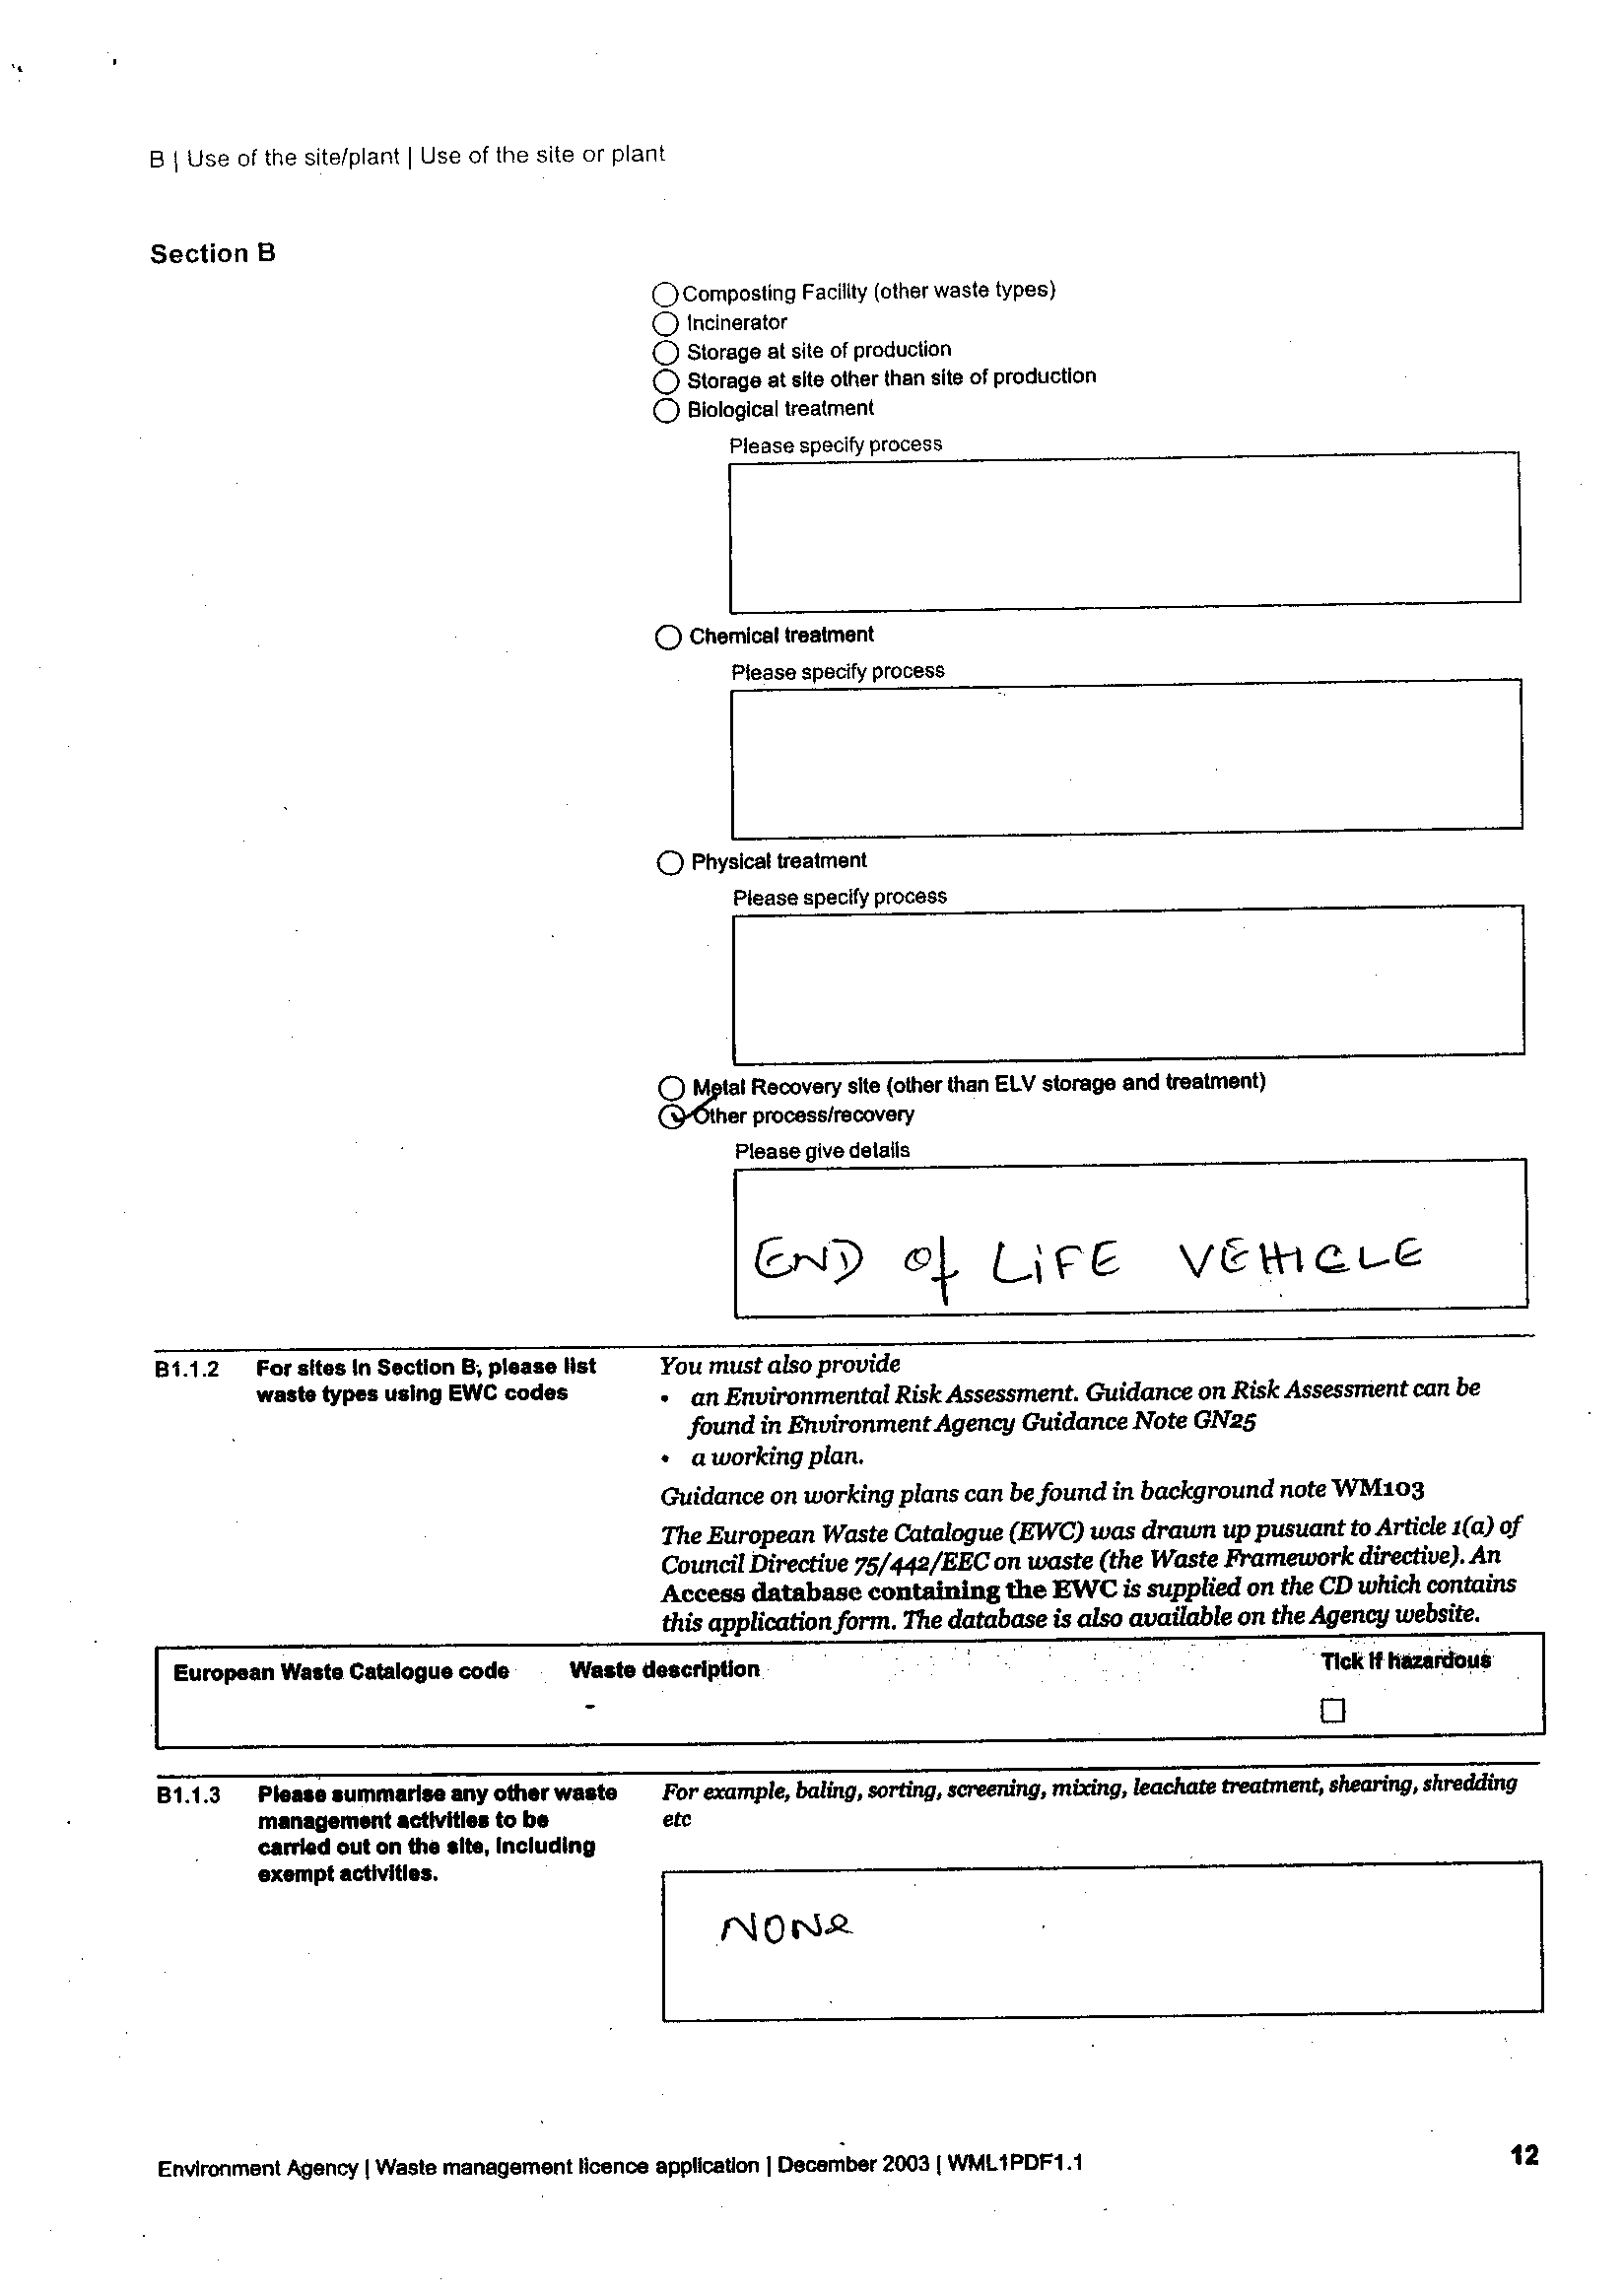 B | Use of the site/plant | Use of the site or plant
Section B
Composting Facility (other waste types)
Incinerator
Storage at site of production
Storage at site other than site of production
Biological treatment
Please specify process
Chemical treatment
Please specify process
Physical treatment
Please specify process
Metal Recovery site (other than ELV storage and treatment)
Other process/recovery
Please give details
END of LiFE VEHICLE
B1.1.2 For sites in Section B, please list
waste types using EWC codes
You must also provide
• an Environmental Risk Assessment. Guidance on Risk Assessment can be
found in Environment Agency Guidance Note GN25
• a working plan.
Guidance on working plans can be found in background note WM103
The European Waste Catalogue (EWC) was drawn up pusuant to Article 1(a) of
Council Directive 75/442/EEC on waste (the Waste Framework directive). An
Access database containing the EWC is supplied on the CD which contains
this application form. The database is also available on the Agency website.
European Waste Catalogue code Waste description Tick if hazardous
B1.1.3 Please summarise any other waste
management activities to be
carried out on the site, including
exempt activities.
For example, baling, sorting, screening, mixing, leachate treatment, shearing, shredding
etc
NONe
Environment Agency | Waste management licence application | December 2003 | WML1PDF1.1 12